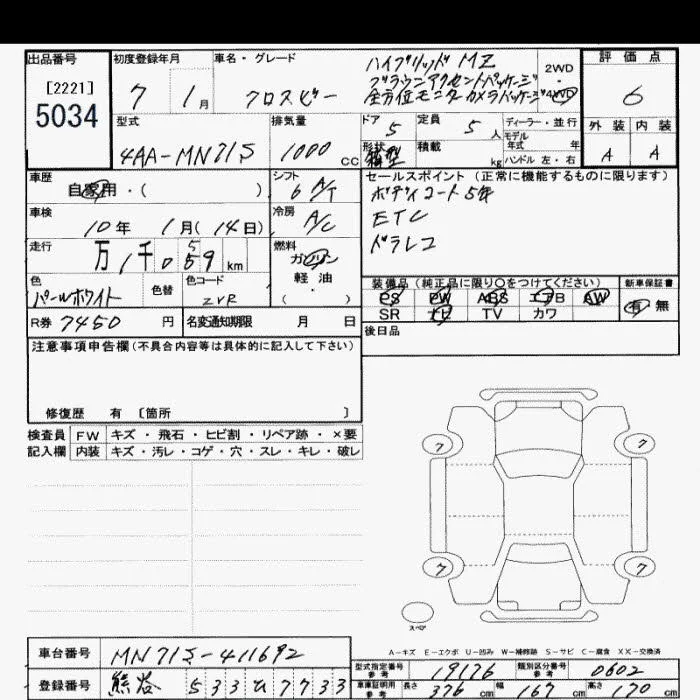 出品番号 初度登録年月 車名・グレード ハイブリッド MZ 2WD 評価点
[2221] 7 1月 クロスビー ブラウンアクセントパッケージ ・ 6
5034 全方位モニターカメラパッケージ 4WD
型式 排気量 ドア 5 定員 5人 ディーラー・並行 外装 内装
4AA-MN71S 1000 cc 形状 箱型 積載 kg モデル年式 年 A A
ハンドル 左・右
車歴 自家用・( ) シフト 6 A/T セールスポイント (正常に機能するものに限ります)
車検 10年 1月(14日) 冷房 A/C ボディコート5年
ETC
走行 万 1千059km 燃料 ガソリン ドラレコ
軽油
・
( )
色 パールホワイト 色替 色コード ZVR 装備品 (純正品に限り○をつけてください) 新車保証書
PS PW ABS エアB AW 有 無
R券 7450 円 名変通知期限 月 日 SR ナビ TV カワ
後日品
注意事項申告欄(不具合内容等は具体的に記入して下さい)
修復歴 有 [箇所 ]
検査員 FW キズ・飛石・ヒビ割・リペア跡・×要
記入欄 内装 キズ・汚レ・コゲ・穴・スレ・キレ・破レ
7 7
7 7
スペア
A-キズ E-エクボ U-凹み W-補修跡 S-サビ C-腐食 XX-交換済
車台番号 MN71S-411692 型式指定番号 参考 19176 類別区分番号 参考 0602
登録番号 熊谷 533 ひ 7733 車庫証明用 参考 長さ 376 cm 幅 167 cm 高さ 170 cm